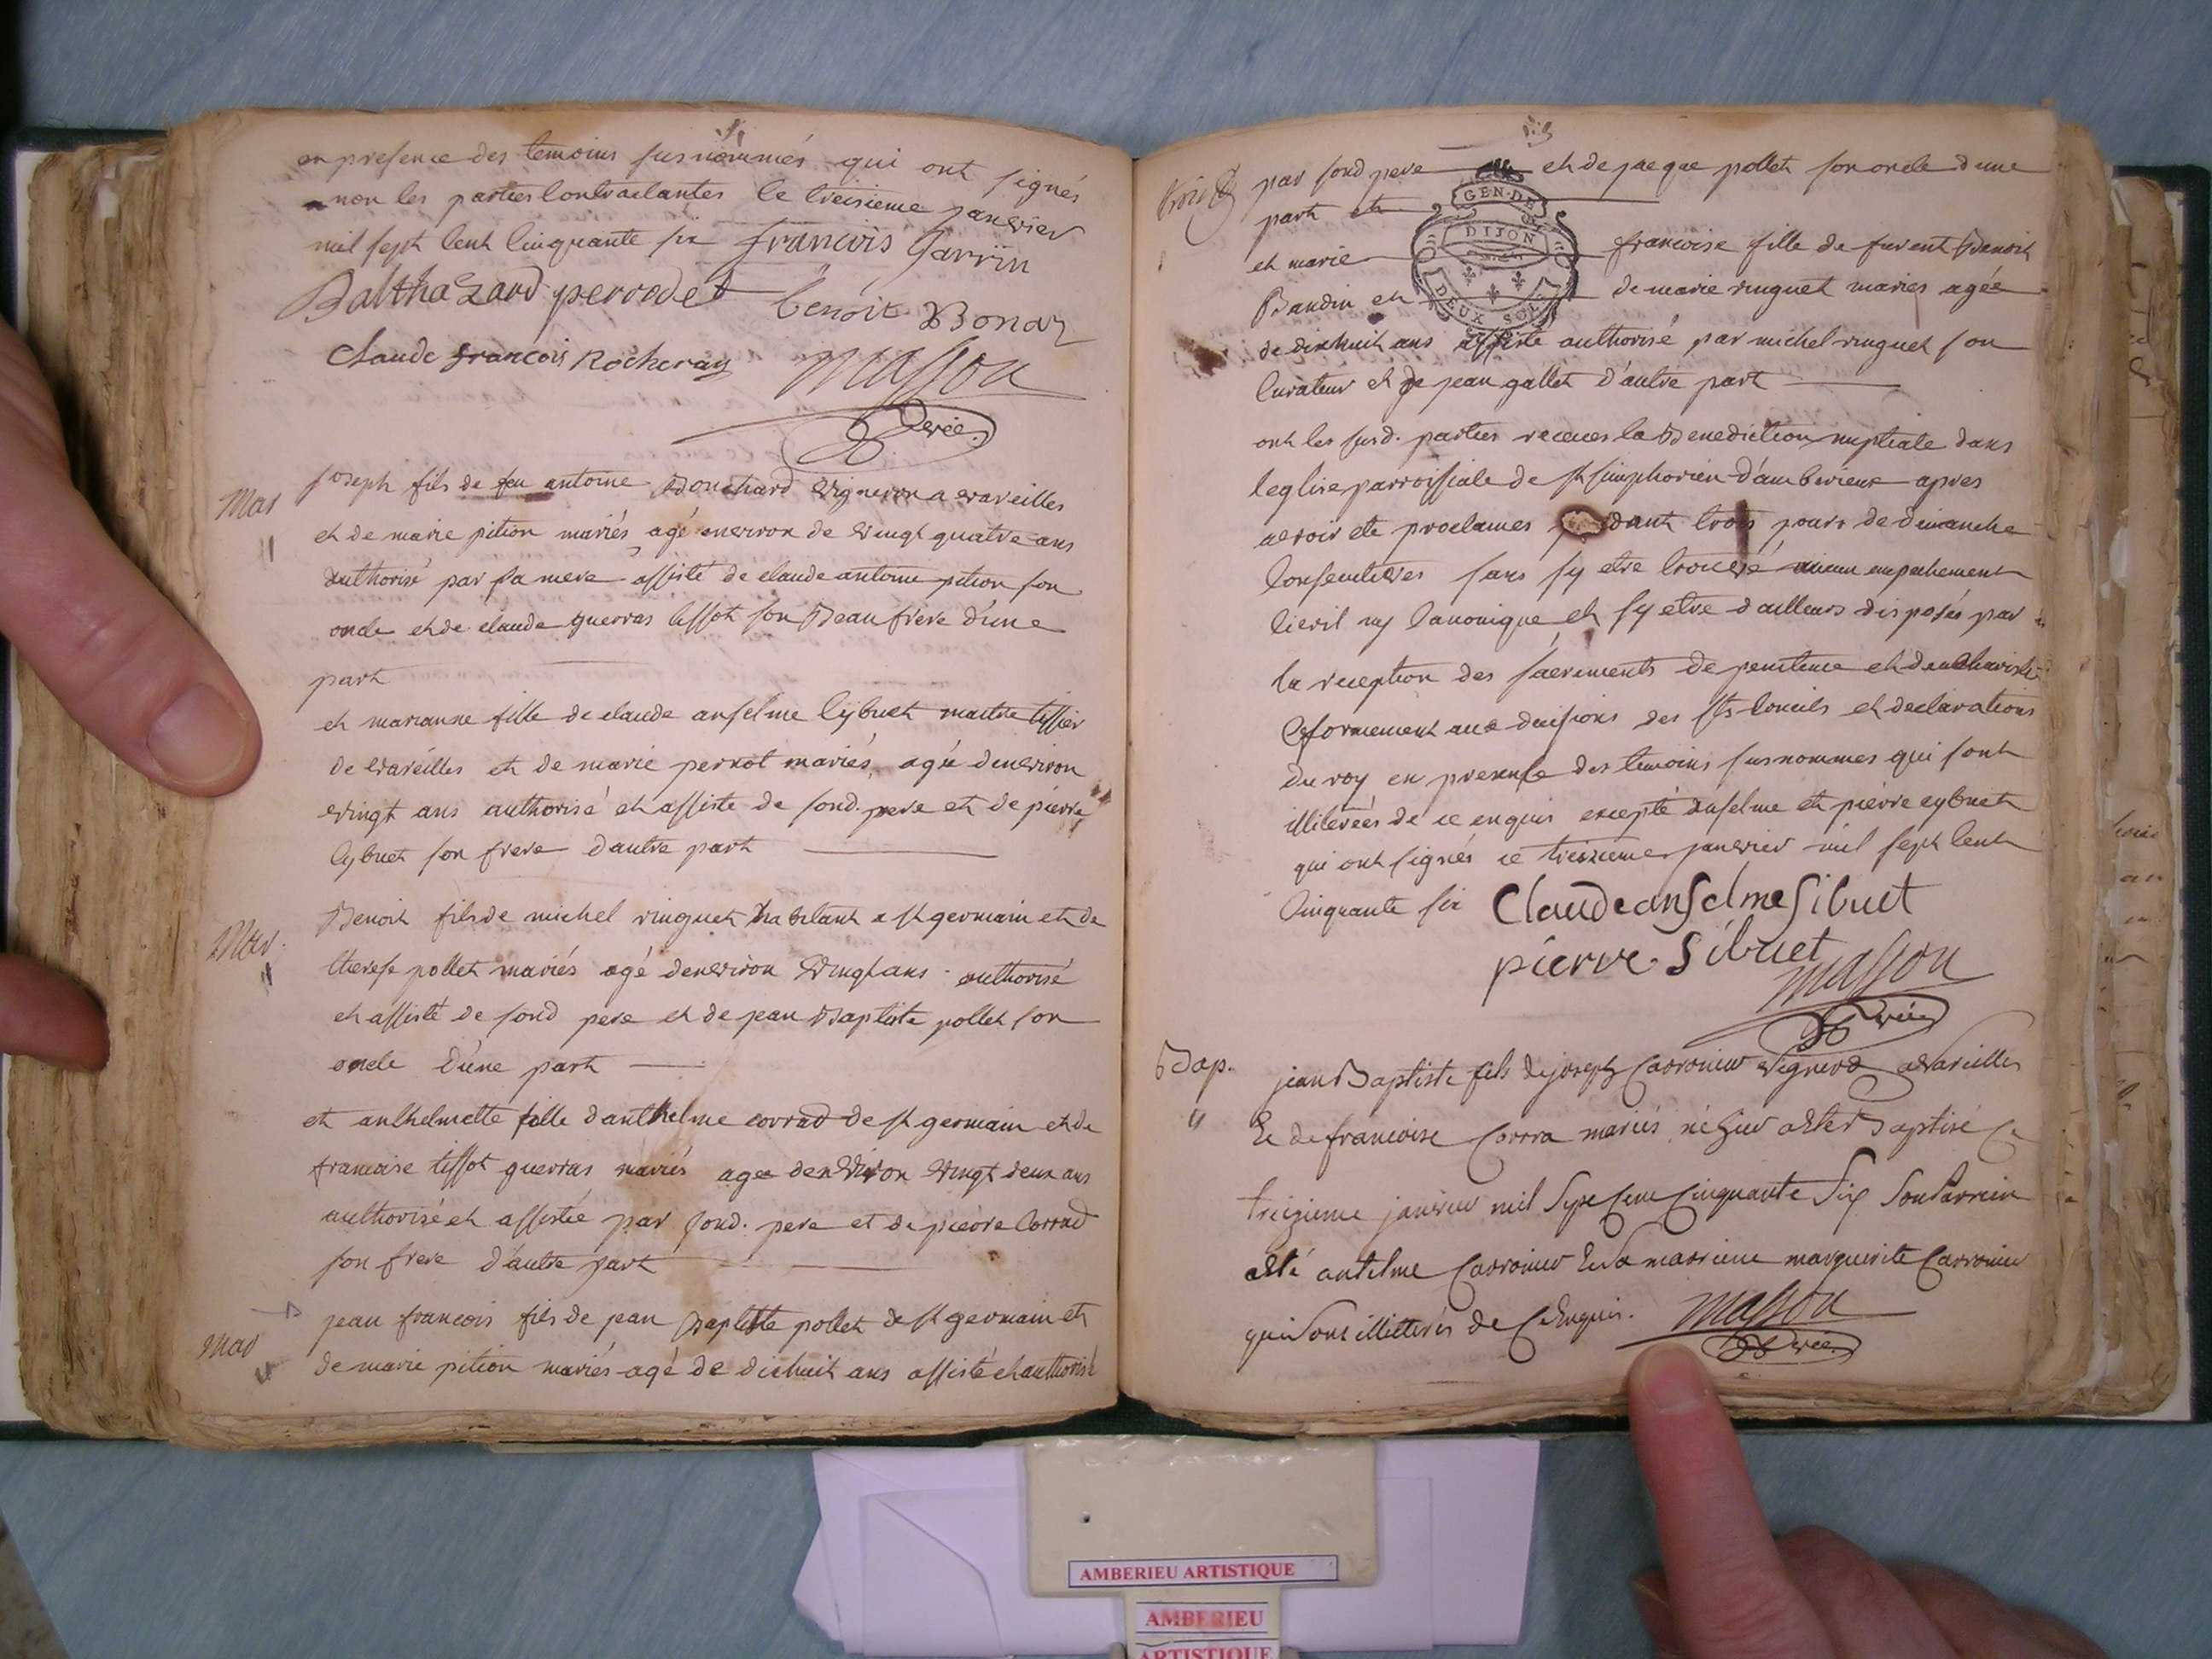 en presence des temoins susnommés qui ont signés
non les parties Contractantes le treisieme janvier
mil sept Cent Cinquante six francois Garrin
Balthazard perrodet benoit Bonaz
Claude francois Rocheray Masson
vice.
Mar joseph fils de feu antoine Bouchard vigneron a vareilles
et de marie pition mariés agé environ de vingt quatre ans
authorisé par sa mere assisté de claude antoine pition son
oncle et de claude guerras tissot son Beaufrere d'une
part
et marianne fille de claude anselme Cybuet maitre tissier
de vareilles et de marie pernot mariés, agée denviron
vingt ans authorisé et assiste de sond. pere et de pierre
Cybuet son frere d'autre part
Mar. Benoit fils de michel ringuet habitant a st germain et de
therese pollet mariés agé denviron vingt ans authorisé
et assisté de sond pere et de jean Baptiste pollet son
oncle d'une part
et anthelmette fille danthelme corrad de st germain et de
francoise tissot guerras mariés agee denviron vingt deux ans
authorisé et assistée par sond. pere et de pierre Corrad
son frere d'autre part
Mar jean francois fils de jean Baptiste pollet de st germain et
de marie pition mariés agé de dixhuit ans assisté et authorisé
trois par sond pere et de jacque pollet son oncle d'une
part et
GEN. DE DIJON
DEUX SOLS
et marie francoise fille de furent Benoit
Baudin et de marie ringuet mariés agée
de dixhuit ans assiste authorisé par michel ringuet son
Curateur et de jean gallet d'autre part
ont les susd. parties receues la Benediction nuptiale dans
leglise parroissiale de st simphorien d'amberieux apres
avoir ete proclames dant trois jours de dimanche
Consecutives sans sy etre trouvé aucun empechement
Civil ny Canonique et sy etre dailleurs disposés par
la reception des sacrements de penitence et deucharistie
Conformement aux decisions des sts Conciles et declarations
du roy en presence des temoins susnommes qui sont
illiterées de ce enquis excepté anselme et pierre cybuet
qui ont signés ce treizieme janvier mil sept Cent
Cinquante six Claude anselme Sibuet
pierre Sibuet Masson
vice.
Bap. jean Baptiste fils de joseph Carronier vigneron a vareilles
Et de francoise Corra mariés né hier a été Baptisé Ce
treizieme janvier mil Sept Cent Cinquante Six Son Parrein
a été antelme Carronier Et Sa marreine marguerite Carronier
qui Sont illitterés de Ce Enquis. Masson
vice.
AMBERIEU ARTISTIQUE
AMBERIEU
ARTISTIQUE